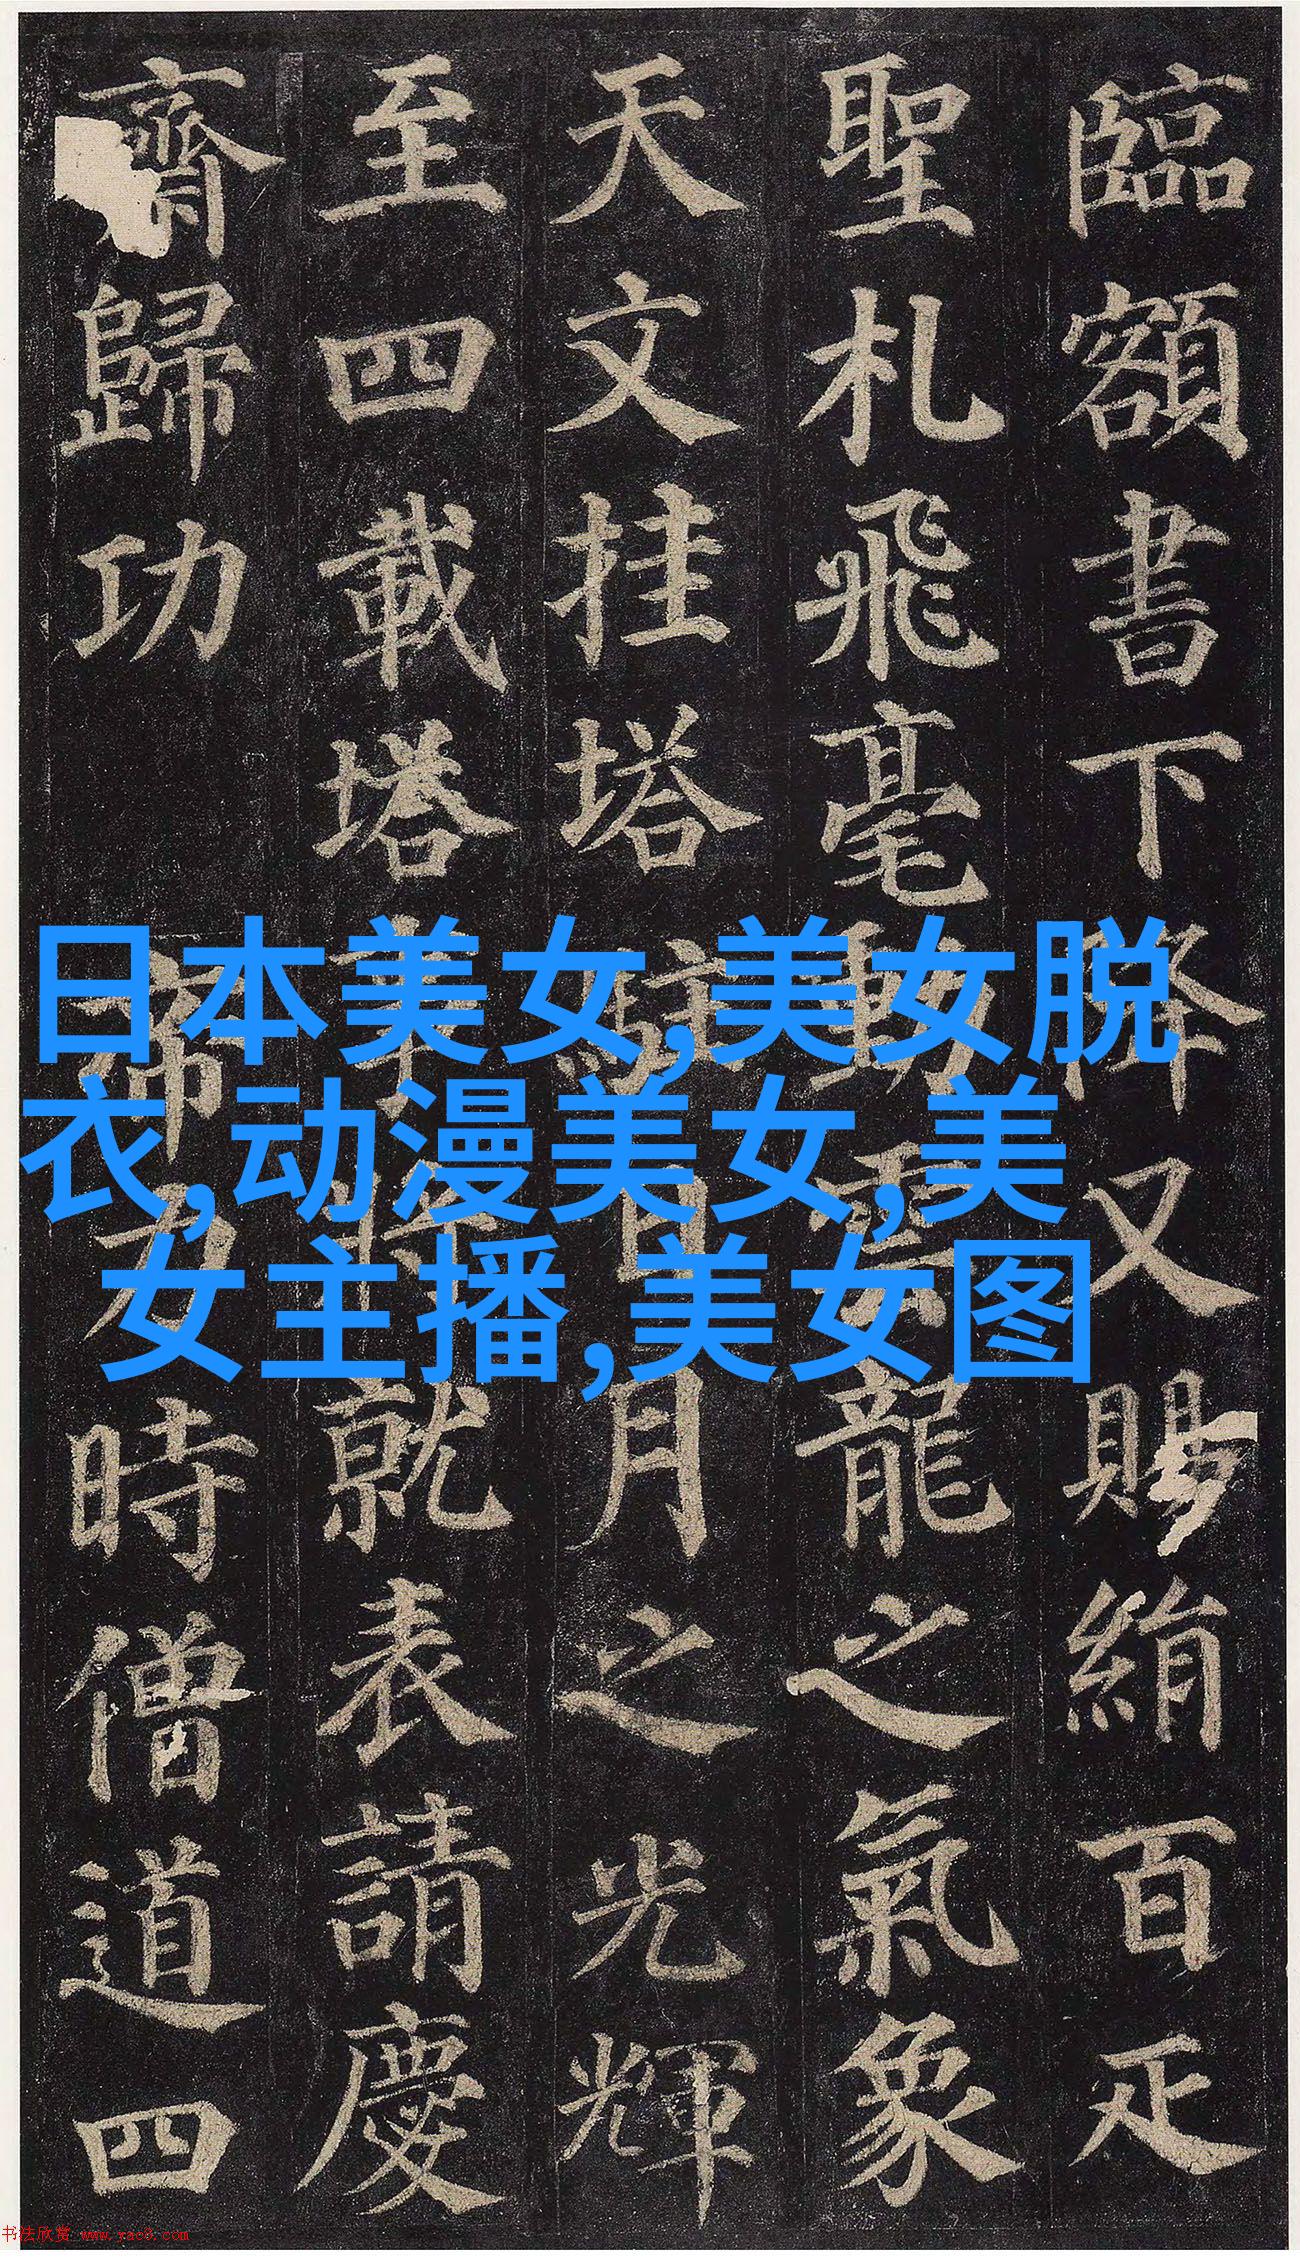 臨額書下降又賜絹百疋
聖札飛毫動雲龍之氣象
天文挂塔駐日月之光輝
至四載塔事將就表請慶
齋歸功 帝力時僧道四
日本美女,美女脱
衣,动漫美女,美
女主播,美女图
书法欣赏 www.yac8.com